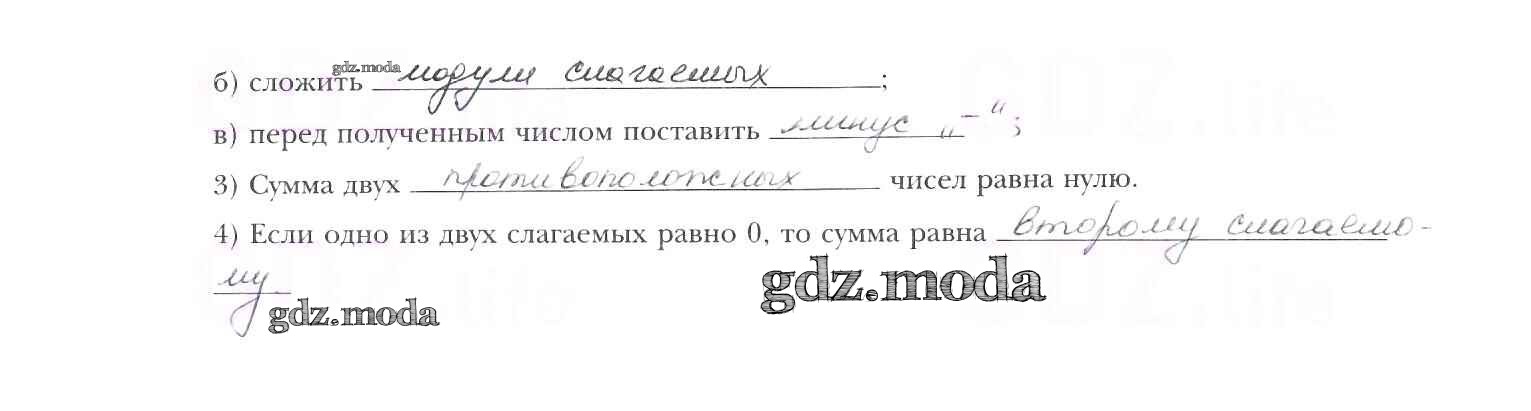 gdz.moda
б) сложить модули слагаемых ;
в) перед полученным числом поставить минус „–“ ;
3) Сумма двух противоположных чисел равна нулю.
4) Если одно из двух слагаемых равно 0, то сумма равна второму слагаемо-
му
gdz.moda
gdz.moda